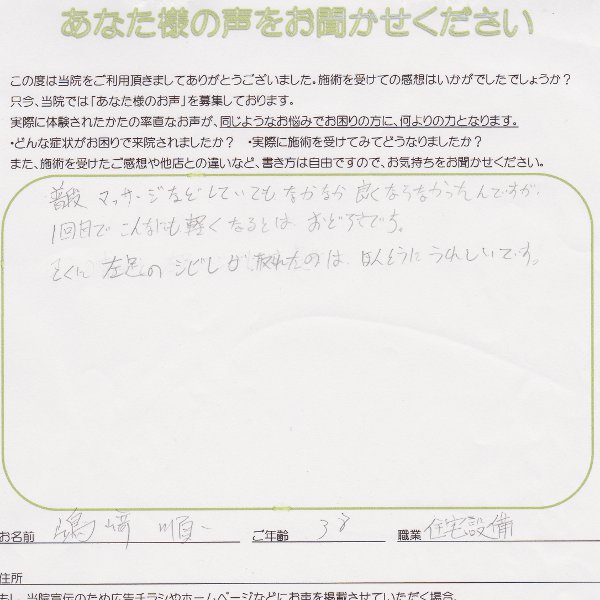 あなた様の声をお聞かせください
この度は当院をご利用頂きましてありがとうございました。施術を受けての感想はいかがでしたでしょうか？
只今、当院では「あなた様のお声」を募集しております。
実際に体験されたかたの率直なお声が、同じようなお悩みでお困りの方に、何よりの力となります。
・どんな症状がお困りで来院されましたか？　・実際に施術を受けてみてどうなりましたか？
また、施術を受けたご感想や他店との違いなど、書き方は自由ですので、お気持ちをお聞かせください。
普段 マッサージなどしていても なかなか 良くならなかったんですが、
1回目で こんなにも 軽く なるとは おどろきです。
とくに 左足の シビレが 取れたのは、ほんとうに うれしいです。
お名前 嶋﨑 順一 ご年齢 38 職業 住宅設備
住所
もし、当院宣伝のため広告チラシやホームページなどにお声を掲載させていただく場合、